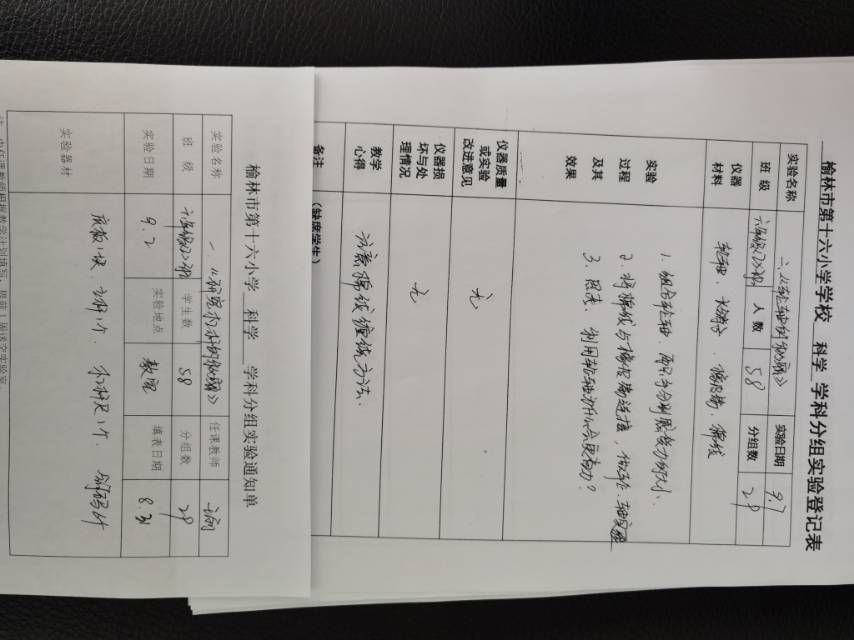 榆林市第十六小学学校 科学 学科分组实验登记表
实验名称 二、《轮轴的秘密》 实验日期 9.7
班级 六年级(2)班 人数 58 分组数 29
仪器材料 轮轴、
实验过程及其效果
1. 组合轮轴,两只手分别感受力的大小。
2. 将棉线与橡皮筋连接,做轮、轴实验
3. 思考:利用轮轴为什么会更省力?
仪器质量或实验改进意见 无
仪器损坏与处理情况 无
教学心得 注意棉线缠绕方法。
备注 (缺席学生)
榆林市第十六小学 科学 学科分组实验通知单
实验名称 一、《研究杠杆的秘密》 任课教师
班级 六年级(2)班 学生数 58 分组数 29
实验日期 9.2 实验地点 教室 填表日期 8.31
实验器材 底板1块、支杆1个、杠杆尺1个、钩码